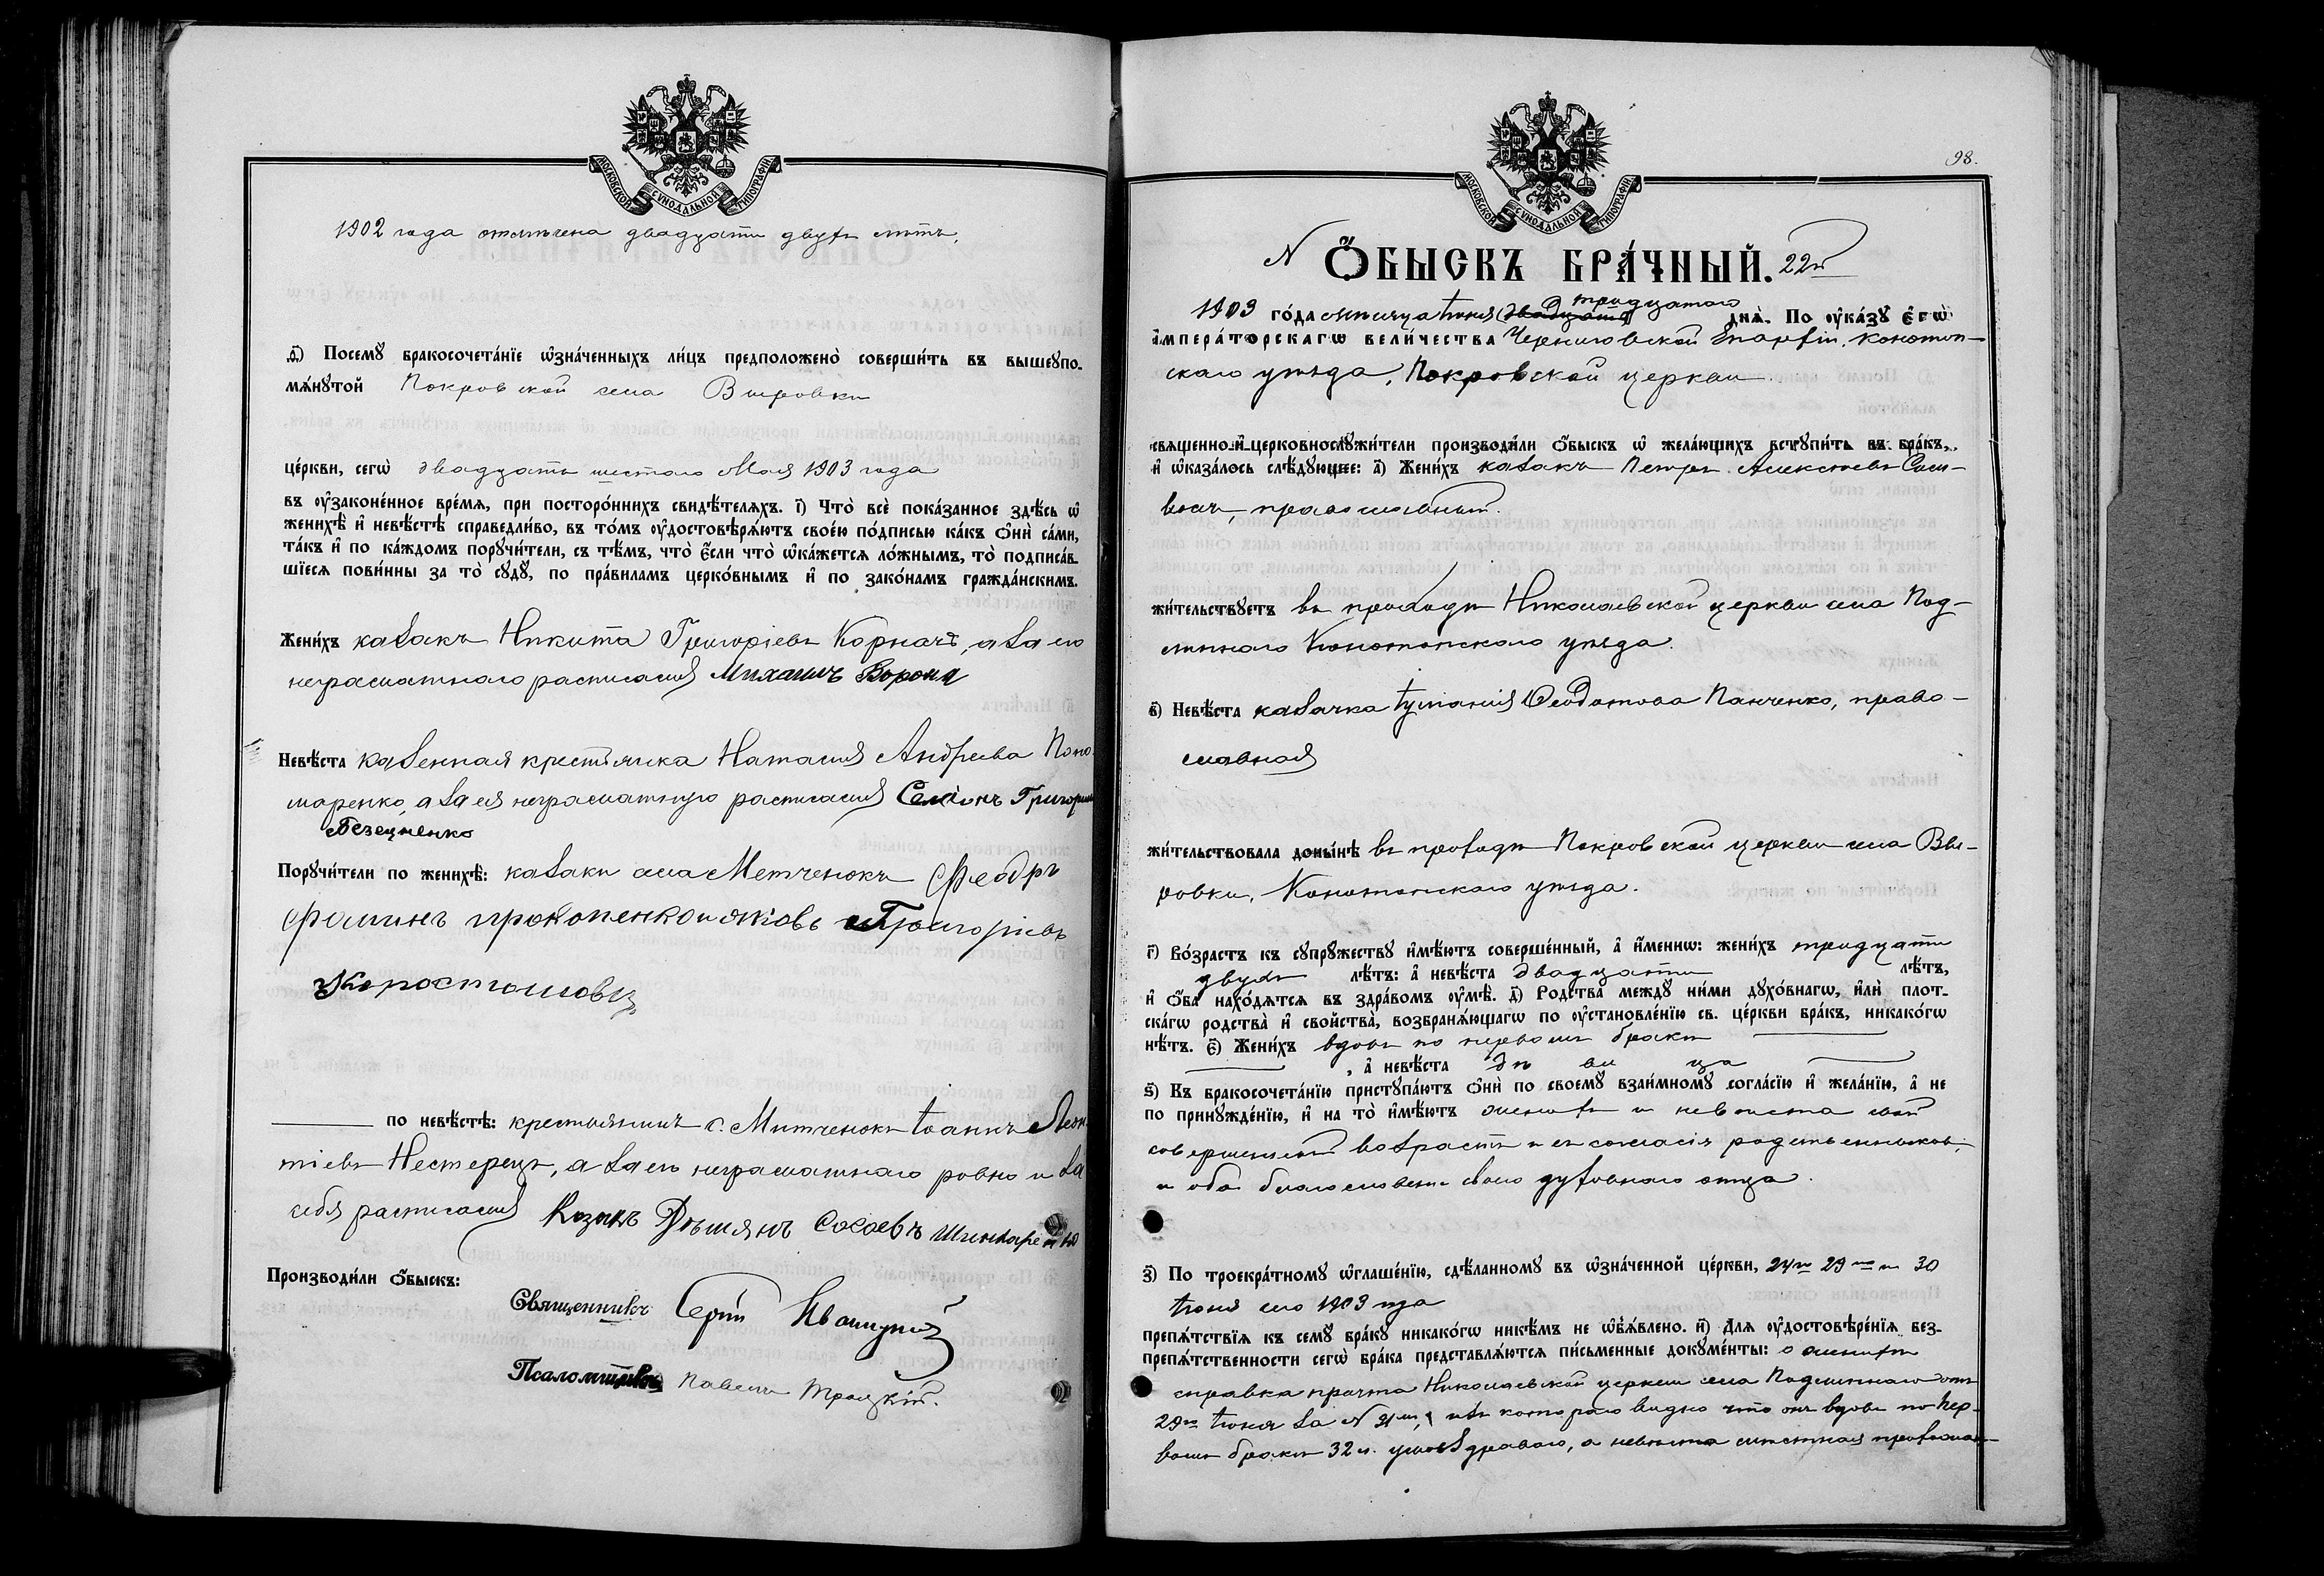 МОСКОВСКОЙ СѴНОДАЛЬНОЙ ТИПОГРАФІИ
1902 года отмѣчена двадцати двухъ лѣтъ.
ѳ҃) Посемꙋ бракосочета́нїе ѡ҆зна́ченныхъ ли́цъ предположено̀ соверши́ть въ вышеꙋпо-
мѧ́нꙋтой Покровской села Вировки
це́ркви, сегѡ̀ двадцать шестого Мая 1903 года
въ ᲂу҆законе́нное вре́мѧ, при посторо́ннихъ свидѣ́телѧхъ. і҃) Что̀ всѐ пока́занное здѣ́сь ѡ҆
женихѣ̀ и҆ невѣ́стѣ справедли́во, въ то́мъ ᲂу҆достовѣрѧ́ютъ свое́ю по́дписью ка́къ ѻ҆нѝ са́ми,
та́къ и҆ по ка́ждомъ порꙋчи́тели, съ тѣ́мъ, что̀ є҆́сли что̀ ѡ҆ка́жетсѧ ло́жнымъ, то̀ подписа́в-
шїесѧ пови́нны за то̀ сꙋдꙋ̀, по пра́виламъ церко́внымъ и҆ по зако́намъ гражда́нскимъ.
Жени́хъ казакъ Никита Григоріевъ Корначъ, а за его
неграматнаго расписался Михаилъ Ворона
Невѣ́ста казенная крестьянка Наталія Андреева Поно-
маренко, а за ея неграматную расписался Семіонъ Григорів
Порꙋчи́тели по женихѣ̀: казаки села Метченокъ Феодръ
Фоминъ прокопенко и яковъ Григоріевъ
по невѣ́стѣ: крестьянинъ с. Митченокъ Іоаннъ Леон-
тіевъ Нестерецъ, а за его неграматнаго ровно и за
себя расписался Козакъ Дѣмянъ Шинкаренко
Производи́ли ѻ҆́быскъ:
Священникъ Сергій
Псаломщикъ Павелъ Троцкій.
98.
МОСКОВСКОЙ СѴНОДАЛЬНОЙ ТИПОГРАФІИ
N Ѻ҆́БЫСКЪ БРА́ЧНЫЙ. 22й
тридцатого
1903 го́да мѣсяца Іюня днѧ̀. По ᲂу҆ка́зꙋ є҆гѡ̀
и҆мпера́торскагѡ вели́чества Черниговской Епархіи, Конотоп-
скаго уѣзда, Покровской церкви
свѧщенно-и҆-церковнослꙋжи́тели производи́ли ѻ҆́быскъ ѡ҆ жела́ющихъ встꙋпи́ть въ бра́къ,
и҆ ѡ҆каза́лось слѣ́дꙋющее: а҃) Жени́хъ казакъ Петръ Алексѣевъ
православный.
жи́тельствꙋетъ въ приходѣ Николаевской церкви села Под-
липнаго Конотопскаго уѣзда.
в҃) Невѣ́ста казачка Іуліанія Ѳеодотова Панченко, право-
славная
жи́тельствовала доны́нѣ въ приходѣ Покровской церкви села Ви-
ровки, Конотопскаго уѣзда.
г҃) Во́зрастъ къ сꙋпрꙋ́жествꙋ и҆мѣ́ютъ соверше́нный, а҆ и҆́меннѡ: жени́хъ тридцати
двухъ лѣ́тъ: а҆ невѣ́ста двадцати лѣ́тъ,
и҆ ѻ҆́ба нахо́дѧтсѧ въ здра́вомъ ᲂу҆мѣ̀. д҃) Родства̀ междꙋ̀ ни́ми дꙋхо́внагѡ, и҆лѝ плот-
ска́гѡ родства̀ и҆ сво́йства, возбранѧ́ющагѡ по ᲂу҆становле́нїю св. це́ркви бра́къ, никако́гѡ
нѣ́тъ. є҃) Жени́хъ вдовъ по первомъ бракѣ
, а҆ невѣ́ста дѣ ви ца
ѕ҃) Къ бракосочета́нїю пристꙋпа́ютъ ѻ҆нѝ по своемꙋ̀ взаи́мномꙋ согла́сїю и҆ жела́нїю, а҆ не
по принꙋжде́нїю, и҆ на то̀ и҆мѣ́ютъ женихъ и невѣста свой
совершенный возрастъ и съ согласія родственниковъ,
и оба благословеніе своего духовнаго отца.
з҃) По троекра́тномꙋ ѡ҆глаше́нїю, сдѣ́ланномꙋ въ ѡ҆зна́ченной це́ркви, 24го 29го и 30
Іюня сего 1903 года
препѧ́тствїѧ къ семꙋ̀ бра́кꙋ никако́гѡ никѣ́мъ не ѡ҆б̾ѧ́влено. и҃) Длѧ ᲂу҆достовѣре́нїѧ без-
препѧ́тственности сегѡ̀ бра́ка представлѧ́ютсѧ пи́сьменные докꙋме́нты: о женихѣ
справка причта Николаевской церкви села Подлипнаго отъ
29го Іюня за N 31мъ, изъ котораго видно что онъ вдовъ по пер-
вомъ бракѣ 32 л. ума здраваго, а невѣста